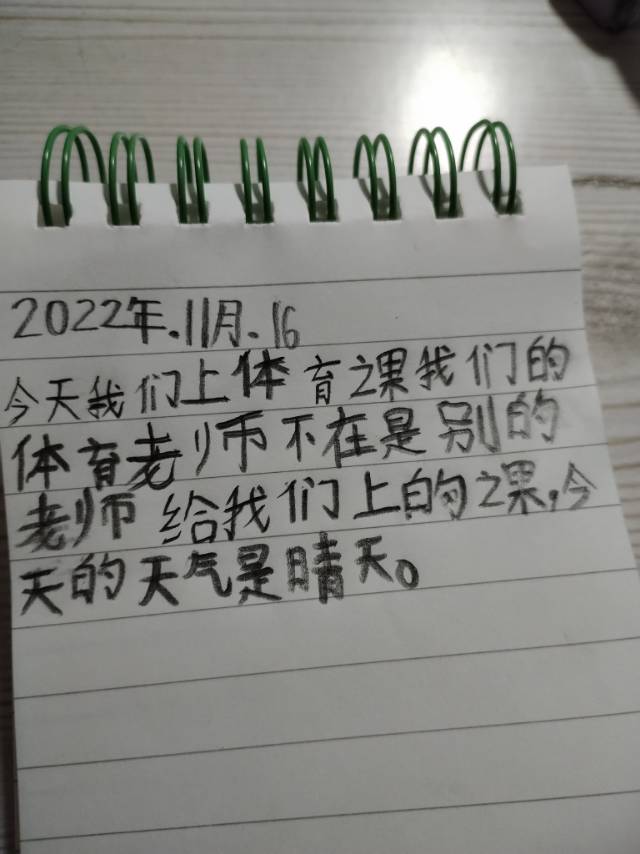 2022年.11月.16
今天我们上体育课我们的
体育老师不在是别的
老师给我们上的课,今
天的天气是晴天。